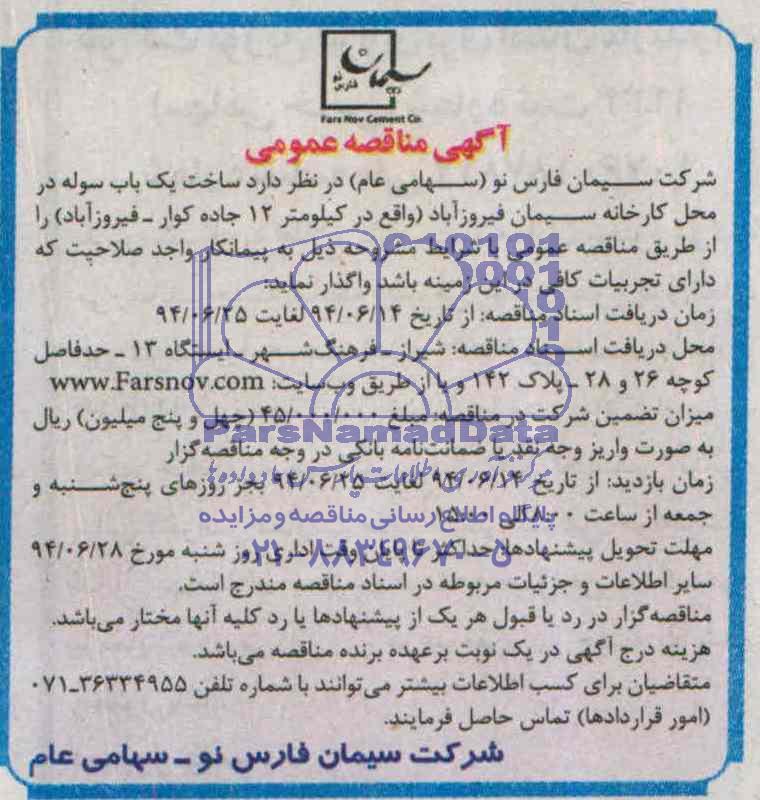 سیمان
فارس نو
Fars Nov Cement Co.
آگهی مناقصه عمومی
شرکت سیمان فارس نو (سهامی عام) در نظر دارد ساخت یک باب سوله در
محل کارخانه سیمان فیروزآباد (واقع در کیلومتر ۱۲ جاده کوار ـ فیروزآباد) را
از طریق مناقصه عمومی با شرایط مشروحه ذیل به پیمانکار واجد صلاحیت که
دارای تجربیات کافی در این زمینه باشد واگذار نماید:
زمان دریافت اسناد مناقصه: از تاریخ ۹۴/۰۶/۱۴ لغایت ۹۴/۰۶/۲۵
محل دریافت اسناد مناقصه: شیراز ـ فرهنگ‌شهر ـ ایستگاه ۱۳ ـ حدفاصل
کوچه ۲۶ و ۲۸ ـ پلاک ۱۴۲ و یا از طریق وب‌سایت: www.Farsnov.com
میزان تضمین شرکت در مناقصه: مبلغ ۴۵/۰۰۰/۰۰۰ (چهل و پنج میلیون) ریال
به صورت واریز وجه نقد یا ضمانت‌نامه بانکی در وجه مناقصه‌گزار
زمان بازدید: از تاریخ ۹۴/۰۶/۱۴ لغایت ۹۴/۰۶/۲۵ بجز روزهای پنج‌شنبه و
جمعه از ساعت ۸:۰۰ الی ۱۵:۰۰
مهلت تحویل پیشنهادها: حداکثر تا پایان وقت اداری روز شنبه مورخ ۹۴/۰۶/۲۸
سایر اطلاعات و جزئیات مربوطه در اسناد مناقصه مندرج است.
مناقصه‌گزار در رد یا قبول هر یک از پیشنهادها یا رد کلیه آنها مختار می‌باشد.
هزینه درج آگهی در یک نوبت برعهده برنده مناقصه می‌باشد.
متقاضیان برای کسب اطلاعات بیشتر می‌توانند با شماره تلفن ۳۶۳۳۴۹۵۵-۰۷۱
(امور قراردادها) تماس حاصل فرمایند.
شرکت سیمان فارس نو ـ سهامی عام
ParsNamadData
پایگاه اطلاع رسانی مناقصه و مزایده
۰۲۱-۸۸۳۴۹۶۷۰-۵